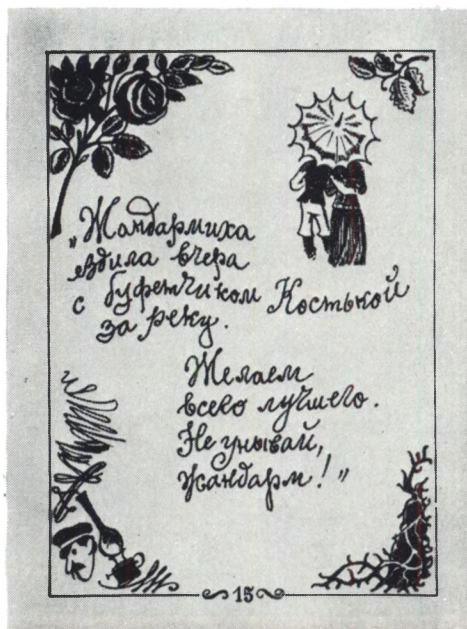 „Жандармиха
ездила вчера
с буфетчиком Костькой
за реку.
Желаем
всего лучшего.
Не унывай,
жандарм!"
15